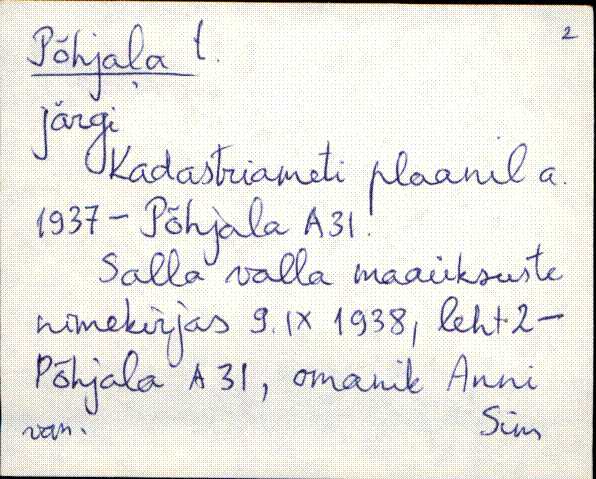 2
Põhjala t.
järgi
Kadastriameti plaanil a.
1937 - Põhjala A 31.
Salla valla maaüksuste
nimekirjas 9. IX 1938, leht 2 -
Põhjala A 31, omanik Anni
van. Sim